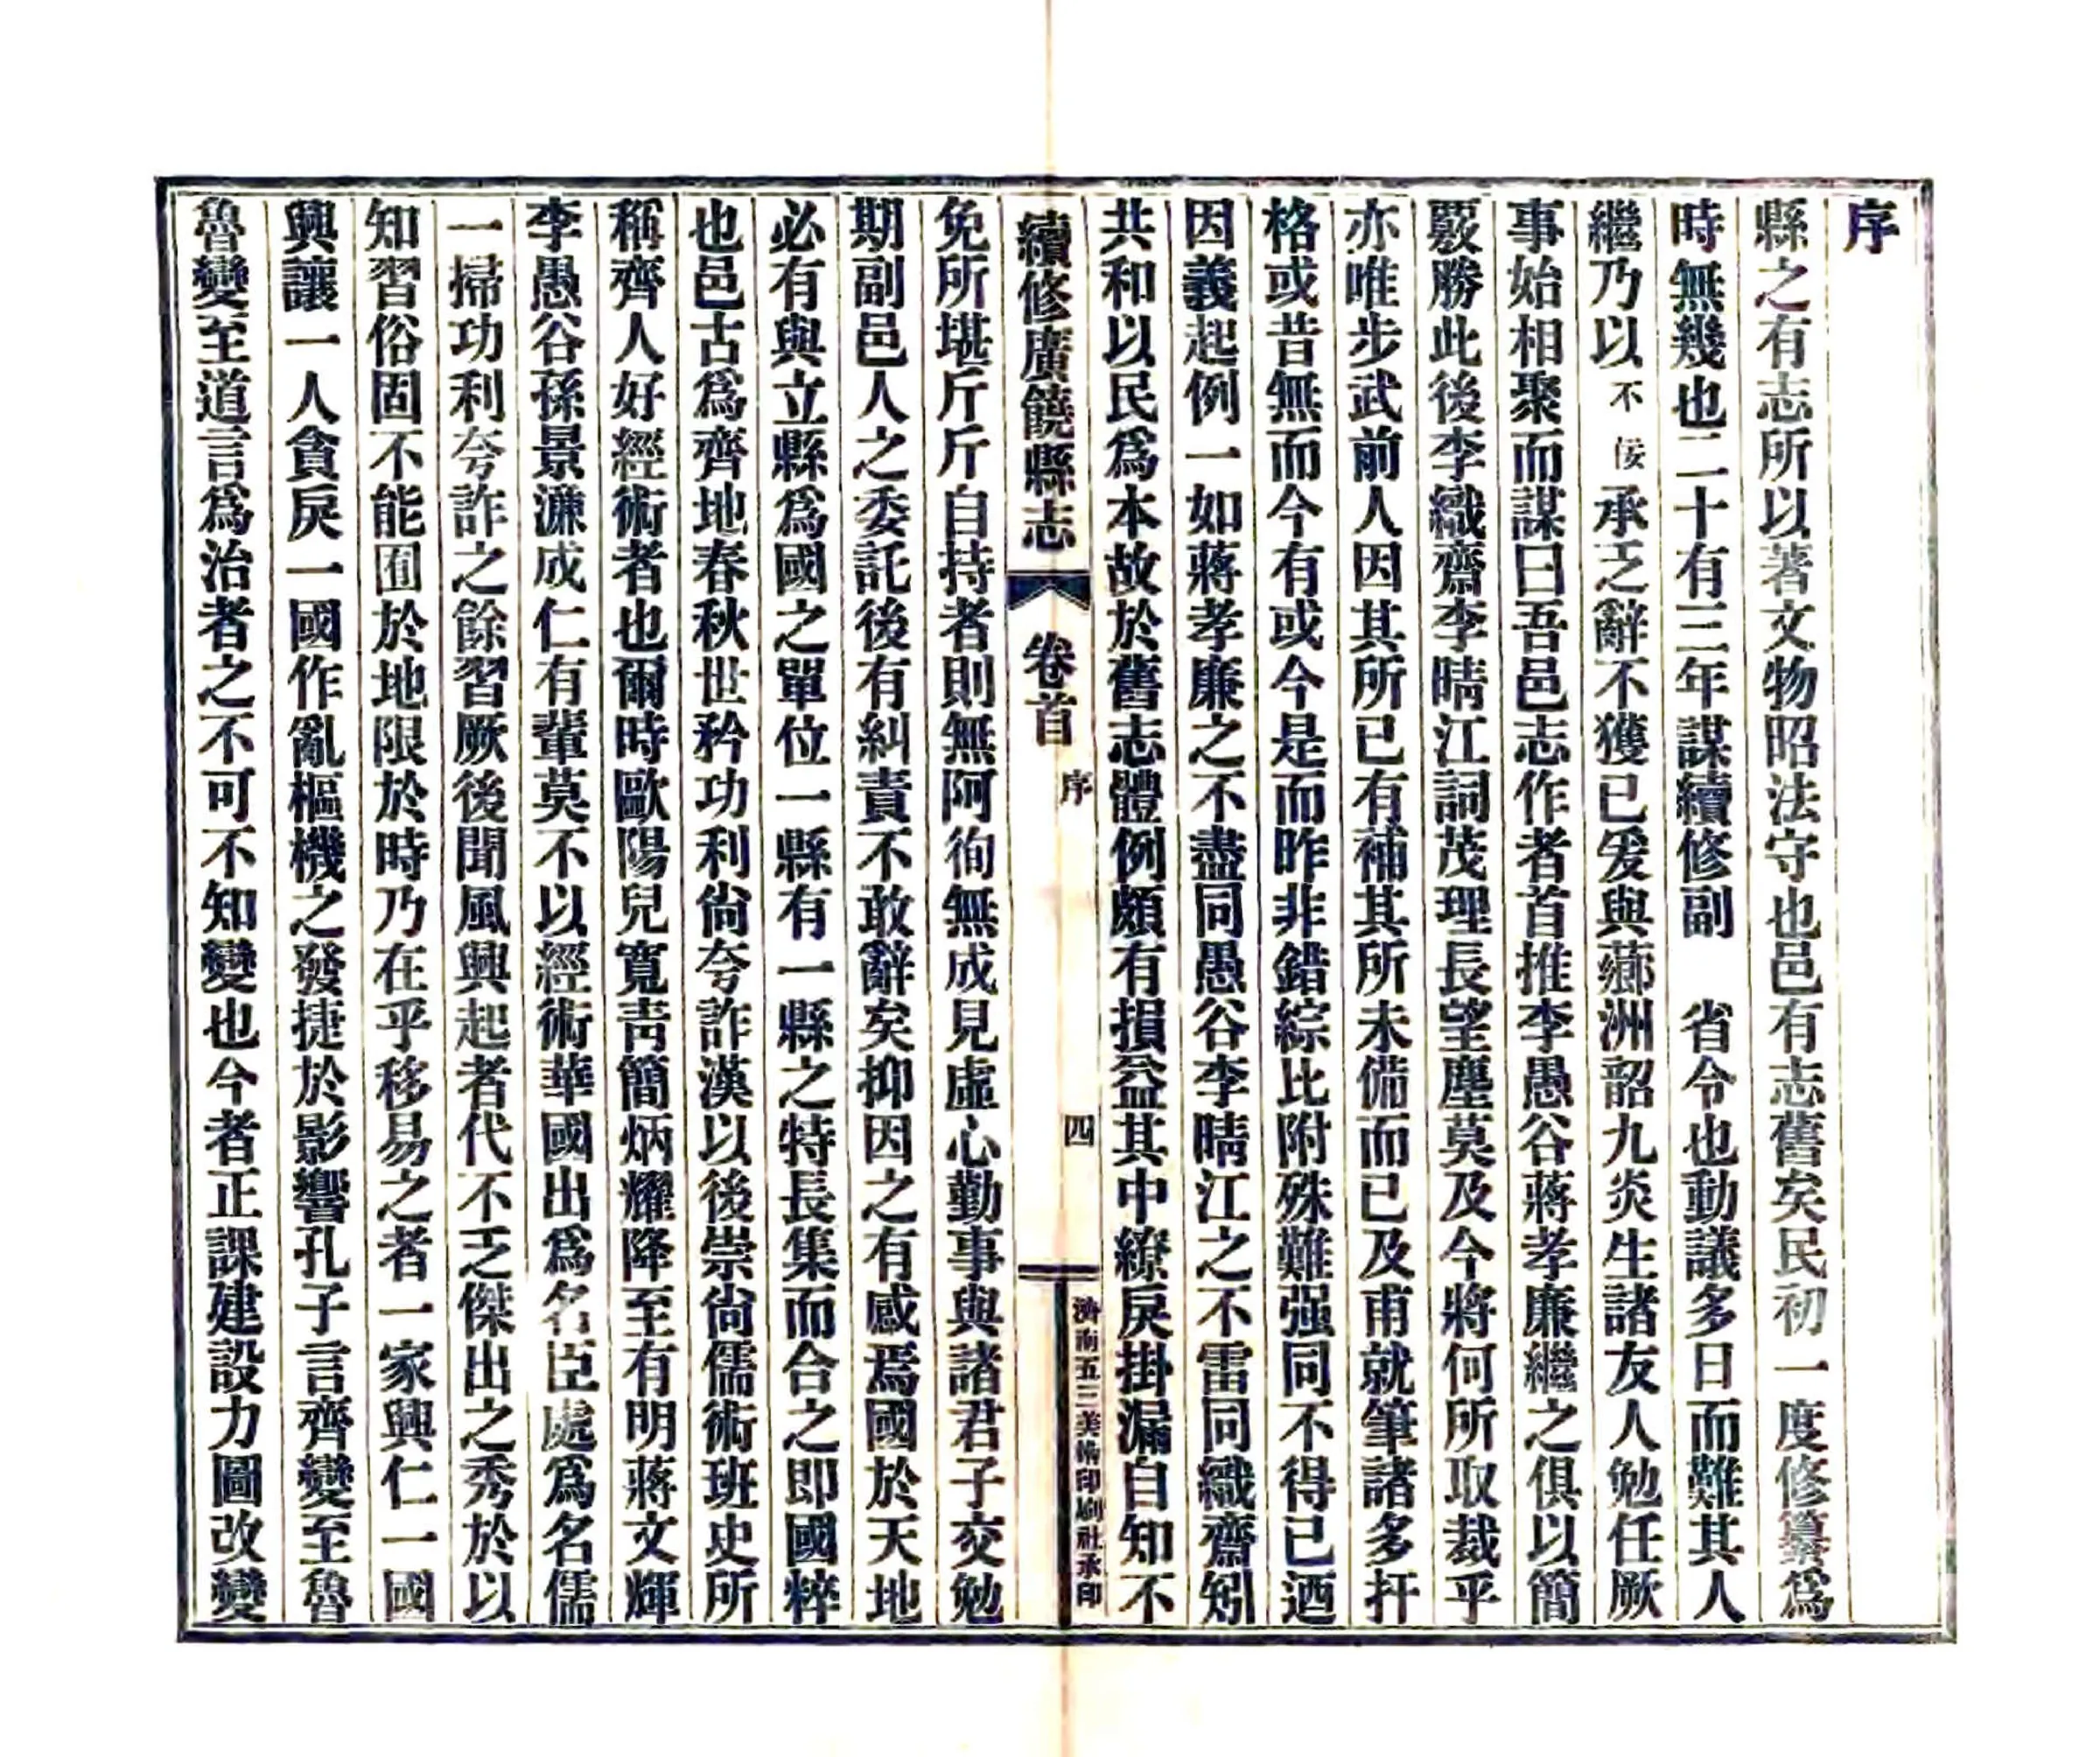 序
縣之有志所以著文物昭法守也邑有志舊矣民初一度修纂爲
時無幾也二十有三年謀續修副　省令也動議多日而難其人
繼乃以不佞承乏辭不獲已爰與薌洲韶九炎生諸友人勉任厥
事始相聚而謀曰吾邑志作者首推李愚谷蔣孝廉繼之俱以簡
覈勝此後李織齋李晴江詞茂理長望塵莫及今將何所取裁乎
亦唯步武前人因其所已有補其所未備而已及甫就筆諸多扞
格或昔無而今有或今是而昨非錯綜比附殊難强同不得已迺
因義起例一如蔣孝廉之不盡同愚谷李晴江之不雷同織齋矧
共和以民爲本故於舊志體例頗有損益其中繚戾掛漏自知不
續修廣饒縣志　卷首　序　四　濟南五三美術印刷社承印
免所堪斤斤自持者則無阿徇無成見虛心勤事與諸君子交勉
期副邑人之委託後有糾責不敢辭矣抑因之有感焉國於天地
必有與立縣爲國之單位一縣有一縣之特長集而合之即國粹
也邑古爲齊地春秋世矜功利尙夸詐漢以後崇尙儒術班史所
稱齊人好經術者也爾時歐陽兒寬靑簡炳耀降至有明蔣文輝
李愚谷孫景濂成仁有輩莫不以經術華國出爲名臣處爲名儒
一掃功利夸詐之餘習厥後聞風興起者代不乏傑出之秀於以
知習俗固不能囿於地限於時乃在乎移易之者一家興仁一國
興讓一人貪戾一國作亂樞機之發捷於影響孔子言齊變至魯
魯變至道言爲治者之不可不知變也今者正課建設力圖改變